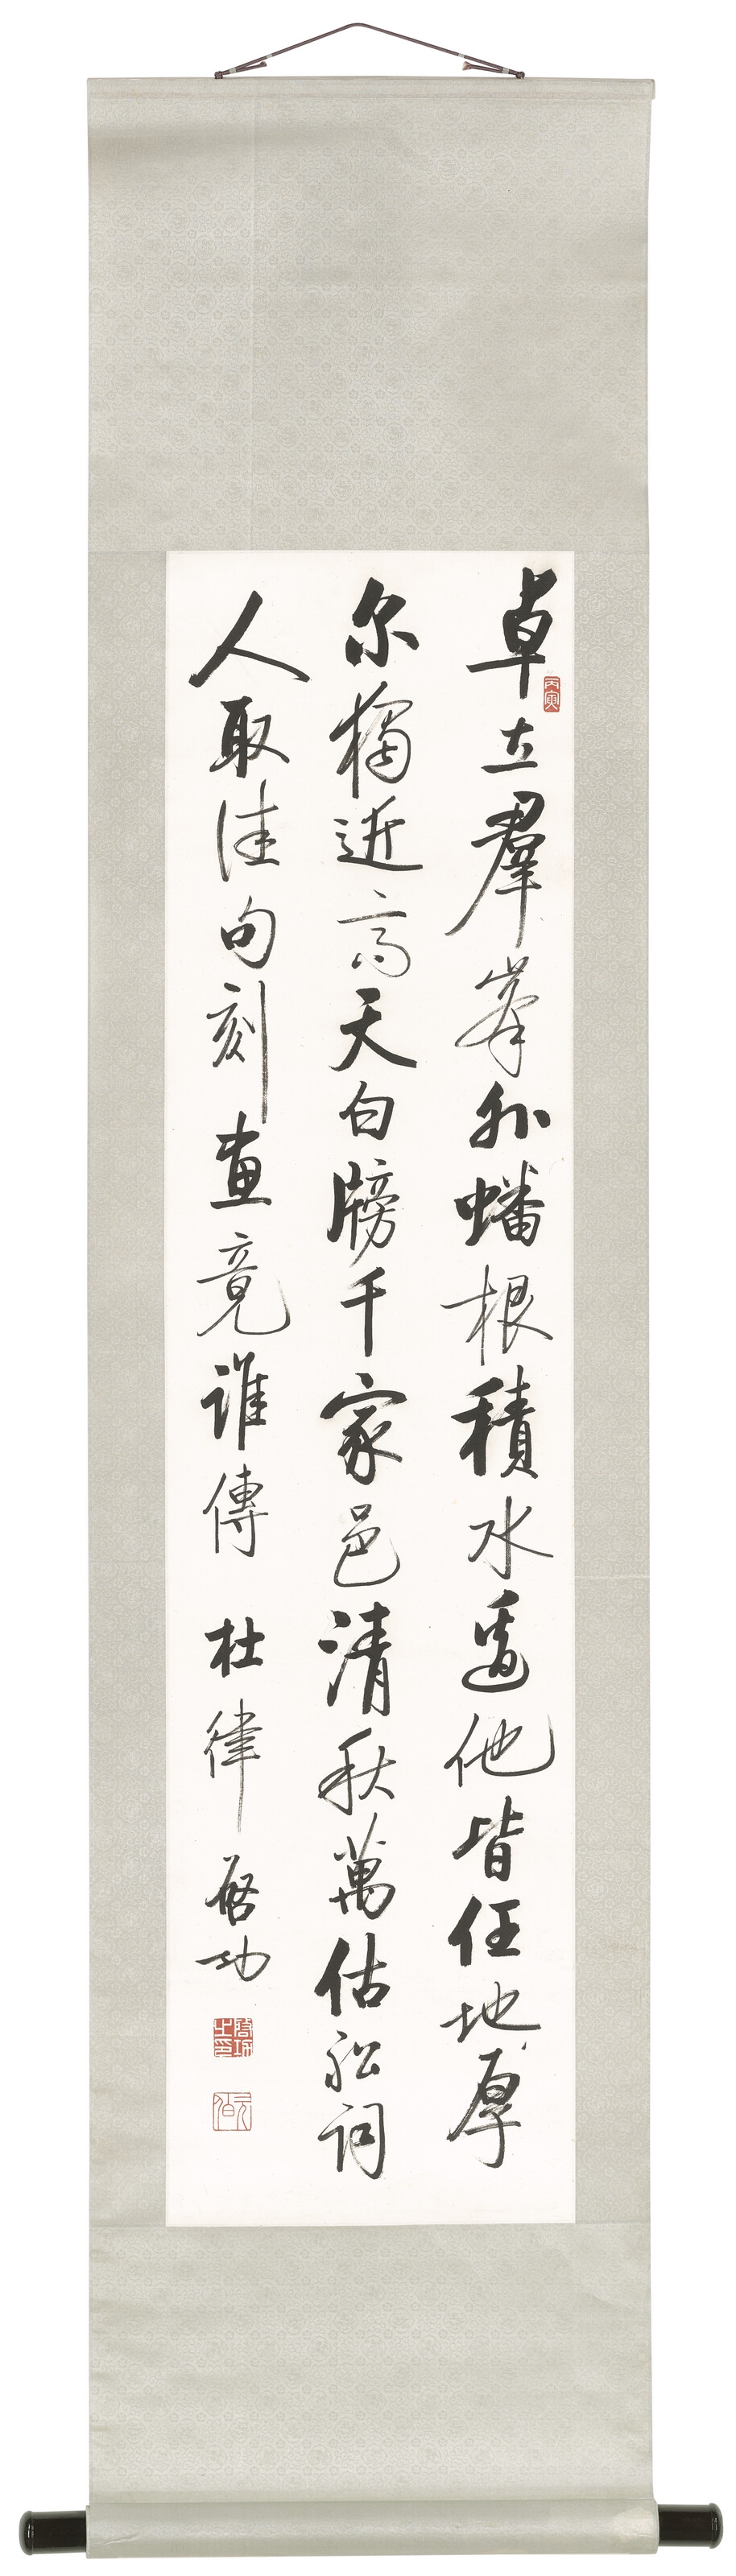 卓立羣峯外蟠根積水邊他皆任地厚
尔獨近高天白牓千家邑清秋萬估舩詞
人取佳句刻畫竟誰傳 杜律 啓功
丙寅
啓功之印
元伯